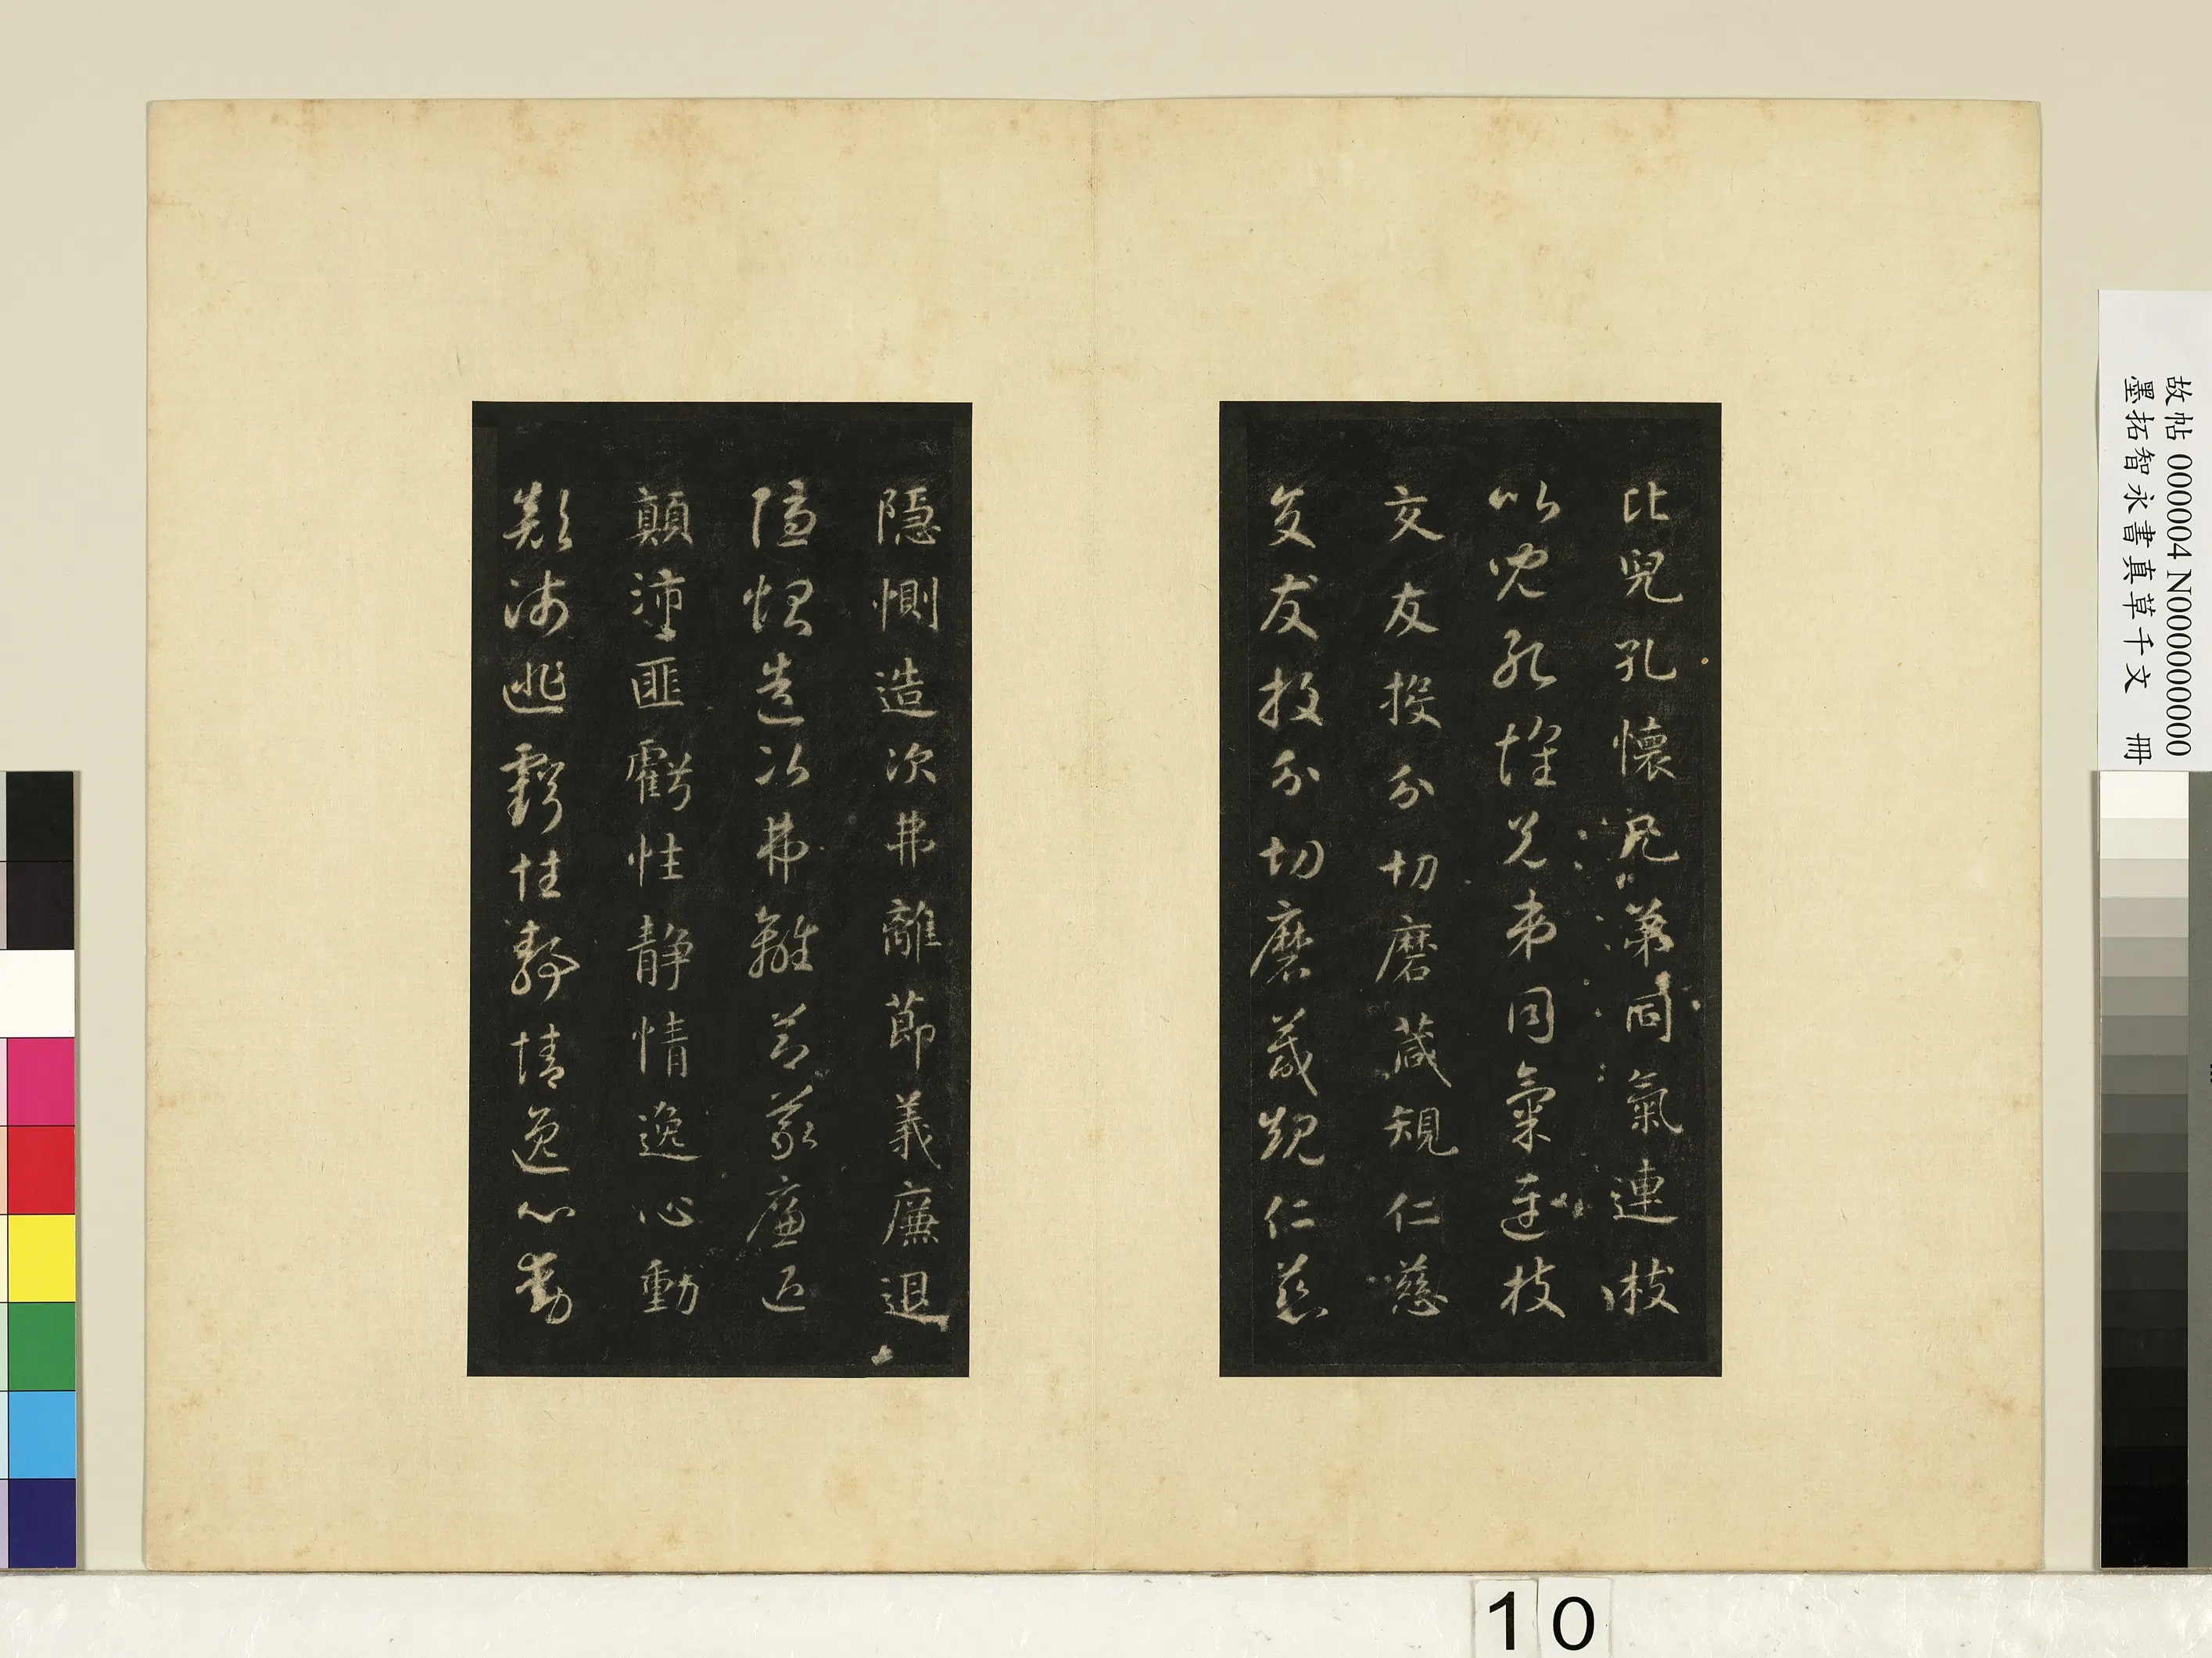 比兒孔懷兄弟同氣連枝
比兒孔懷兄弟同氣連枝
交友投分切磨箴規仁慈
交友投分切磨箴規仁慈
隱惻造次弗離節義廉退
隱惻造次弗離節義廉退
顛沛匪虧性静情逸心動
顛沛匪虧性静情逸心動
故帖 000004 N000000000
墨拓智永書真草千文 冊
10